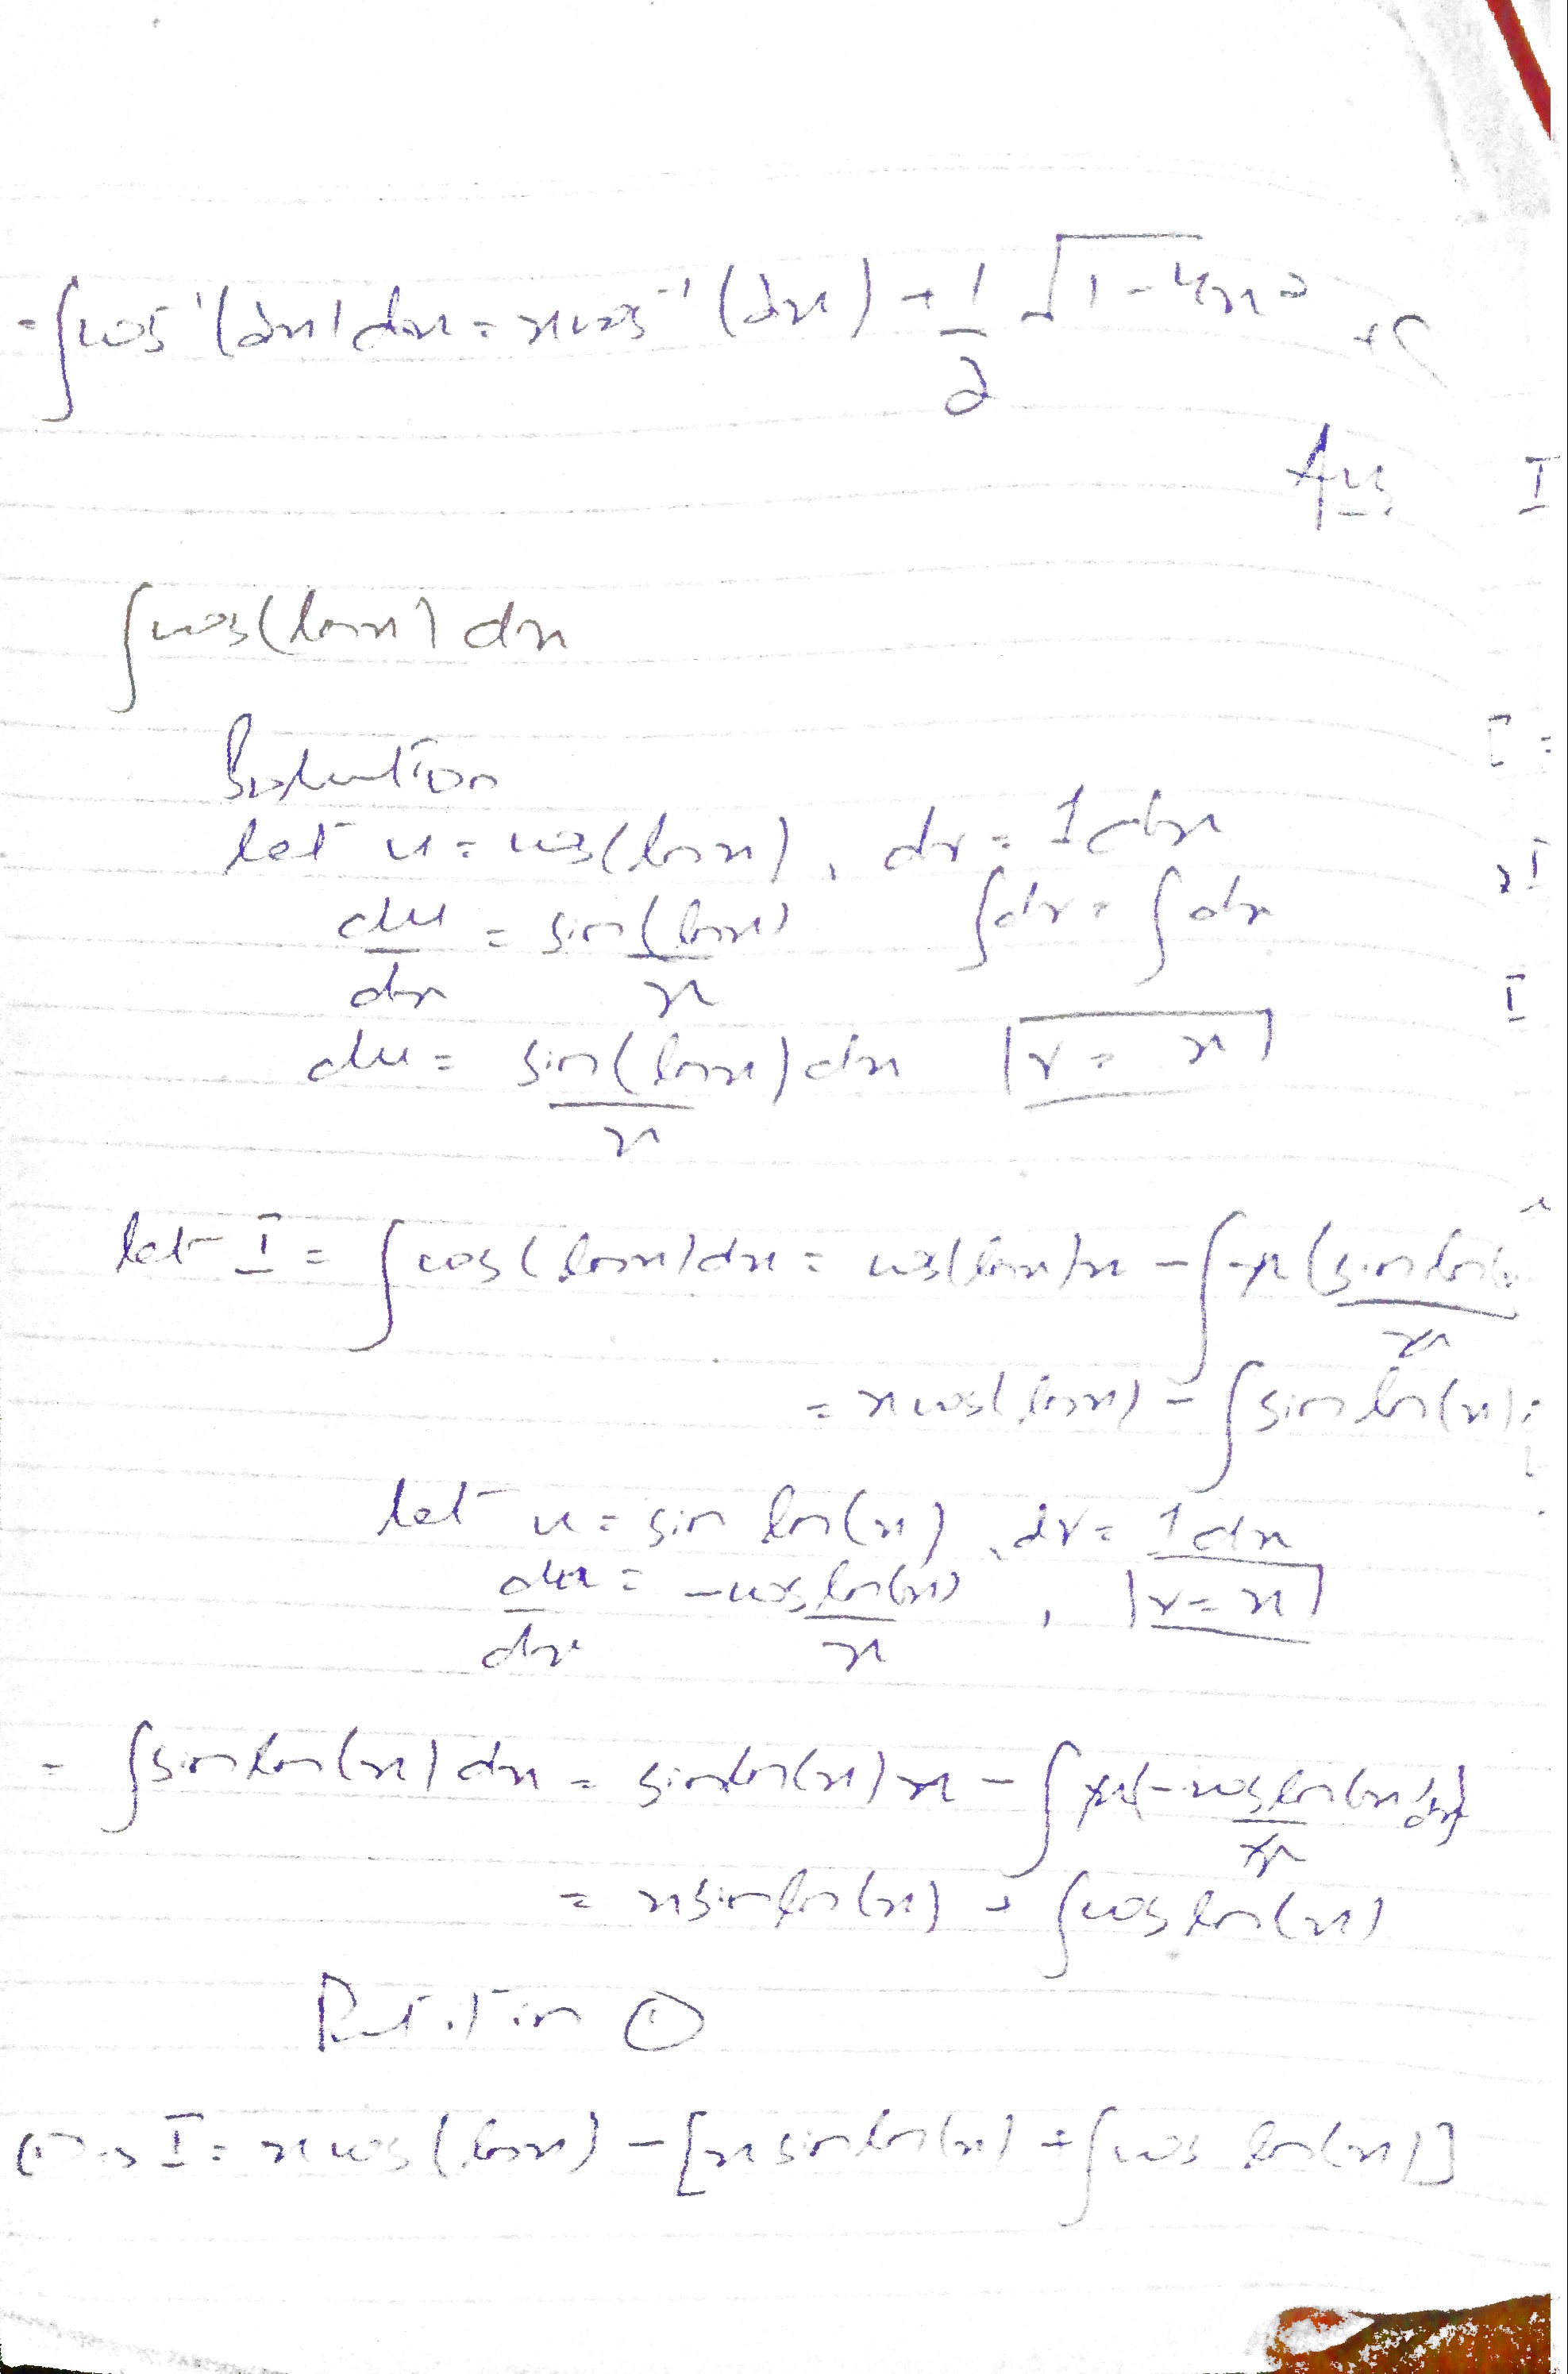 = ∫cos⁻¹(2x)dx = x cos⁻¹(2x) + 1/2 √1-4x² + C
Ans
I
∫cos(lnx) dx
Solution
I =
let u = cos(lnx), dv = 1dx
2I
du/dx = sin(lnx)/x ∫dv = ∫dx
I
du = sin(lnx)/x dx v = x
let I = ∫cos(lnx)dx = cos(lnx)x - ∫x(sin ln(x)/x
= x cos(lnx) - ∫sin ln(x)
let u = sin ln(x), dv = 1dx
du/dx = -cos ln(x)/x, v = x
= ∫sin ln(x) dx = sin ln(x) x - ∫x(-cos ln(x)/x dx)
= x sin ln(x) + ∫cos ln(x)
Put it in ①
①⇒ I = x cos(lnx) - [x sin ln(x) + ∫cos ln(x)]